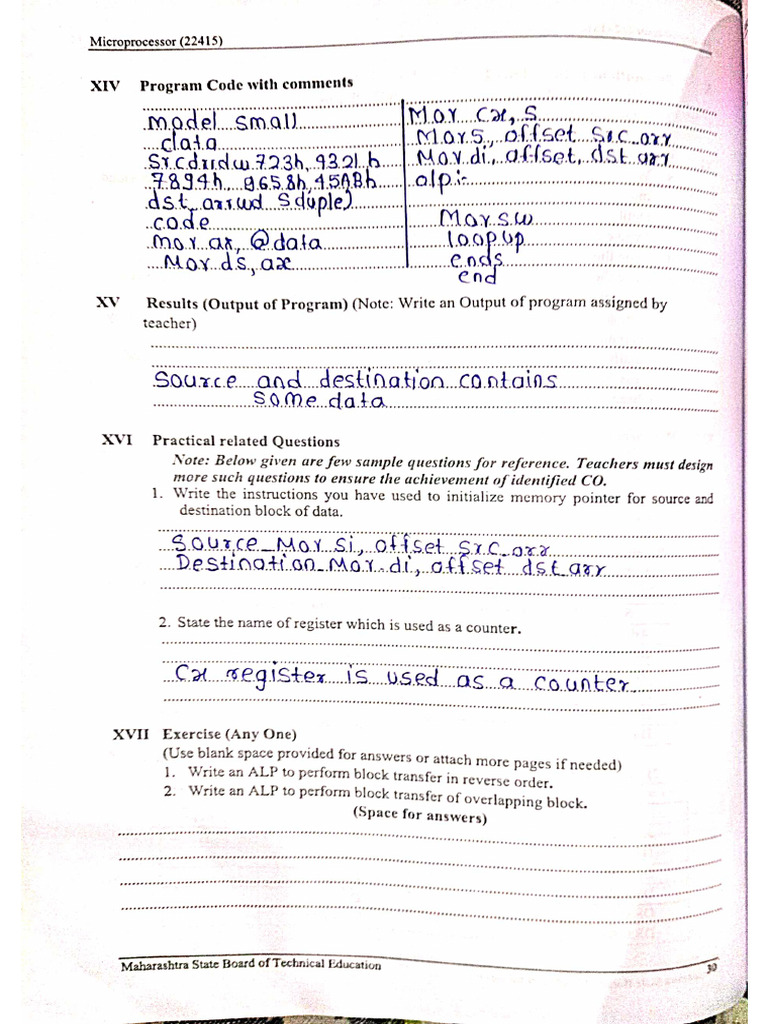 Microprocessor (22415)
XIV Program Code with comments
model small
data
Srcdrrdw 723h, 9321h
7894h, 9658h, 45A8h
dst_arrwd Sduple)
code
mor ax, @data
Mor ds, ax
Mor Cx, S
Mor S, offset Src_arr
Mor di, offset, dst arr
alp:-
Morsw
loop up
ends
end
XV Results (Output of Program) (Note: Write an Output of program assigned by
teacher)
Source and destination contains
some data
XVI Practical related Questions
Note: Below given are few sample questions for reference. Teachers must design
more such questions to ensure the achievement of identified CO.
1. Write the instructions you have used to initialize memory pointer for source and
destination block of data.
Source_Mor si, offset Src_arr
Destination_Mor di, offset dst_arr
2. State the name of register which is used as a counter.
Cx register is used as a counter
XVII Exercise (Any One)
(Use blank space provided for answers or attach more pages if needed)
1. Write an ALP to perform block transfer in reverse order.
2. Write an ALP to perform block transfer of overlapping block.
(Space for answers)
Maharashtra State Board of Technical Education
39